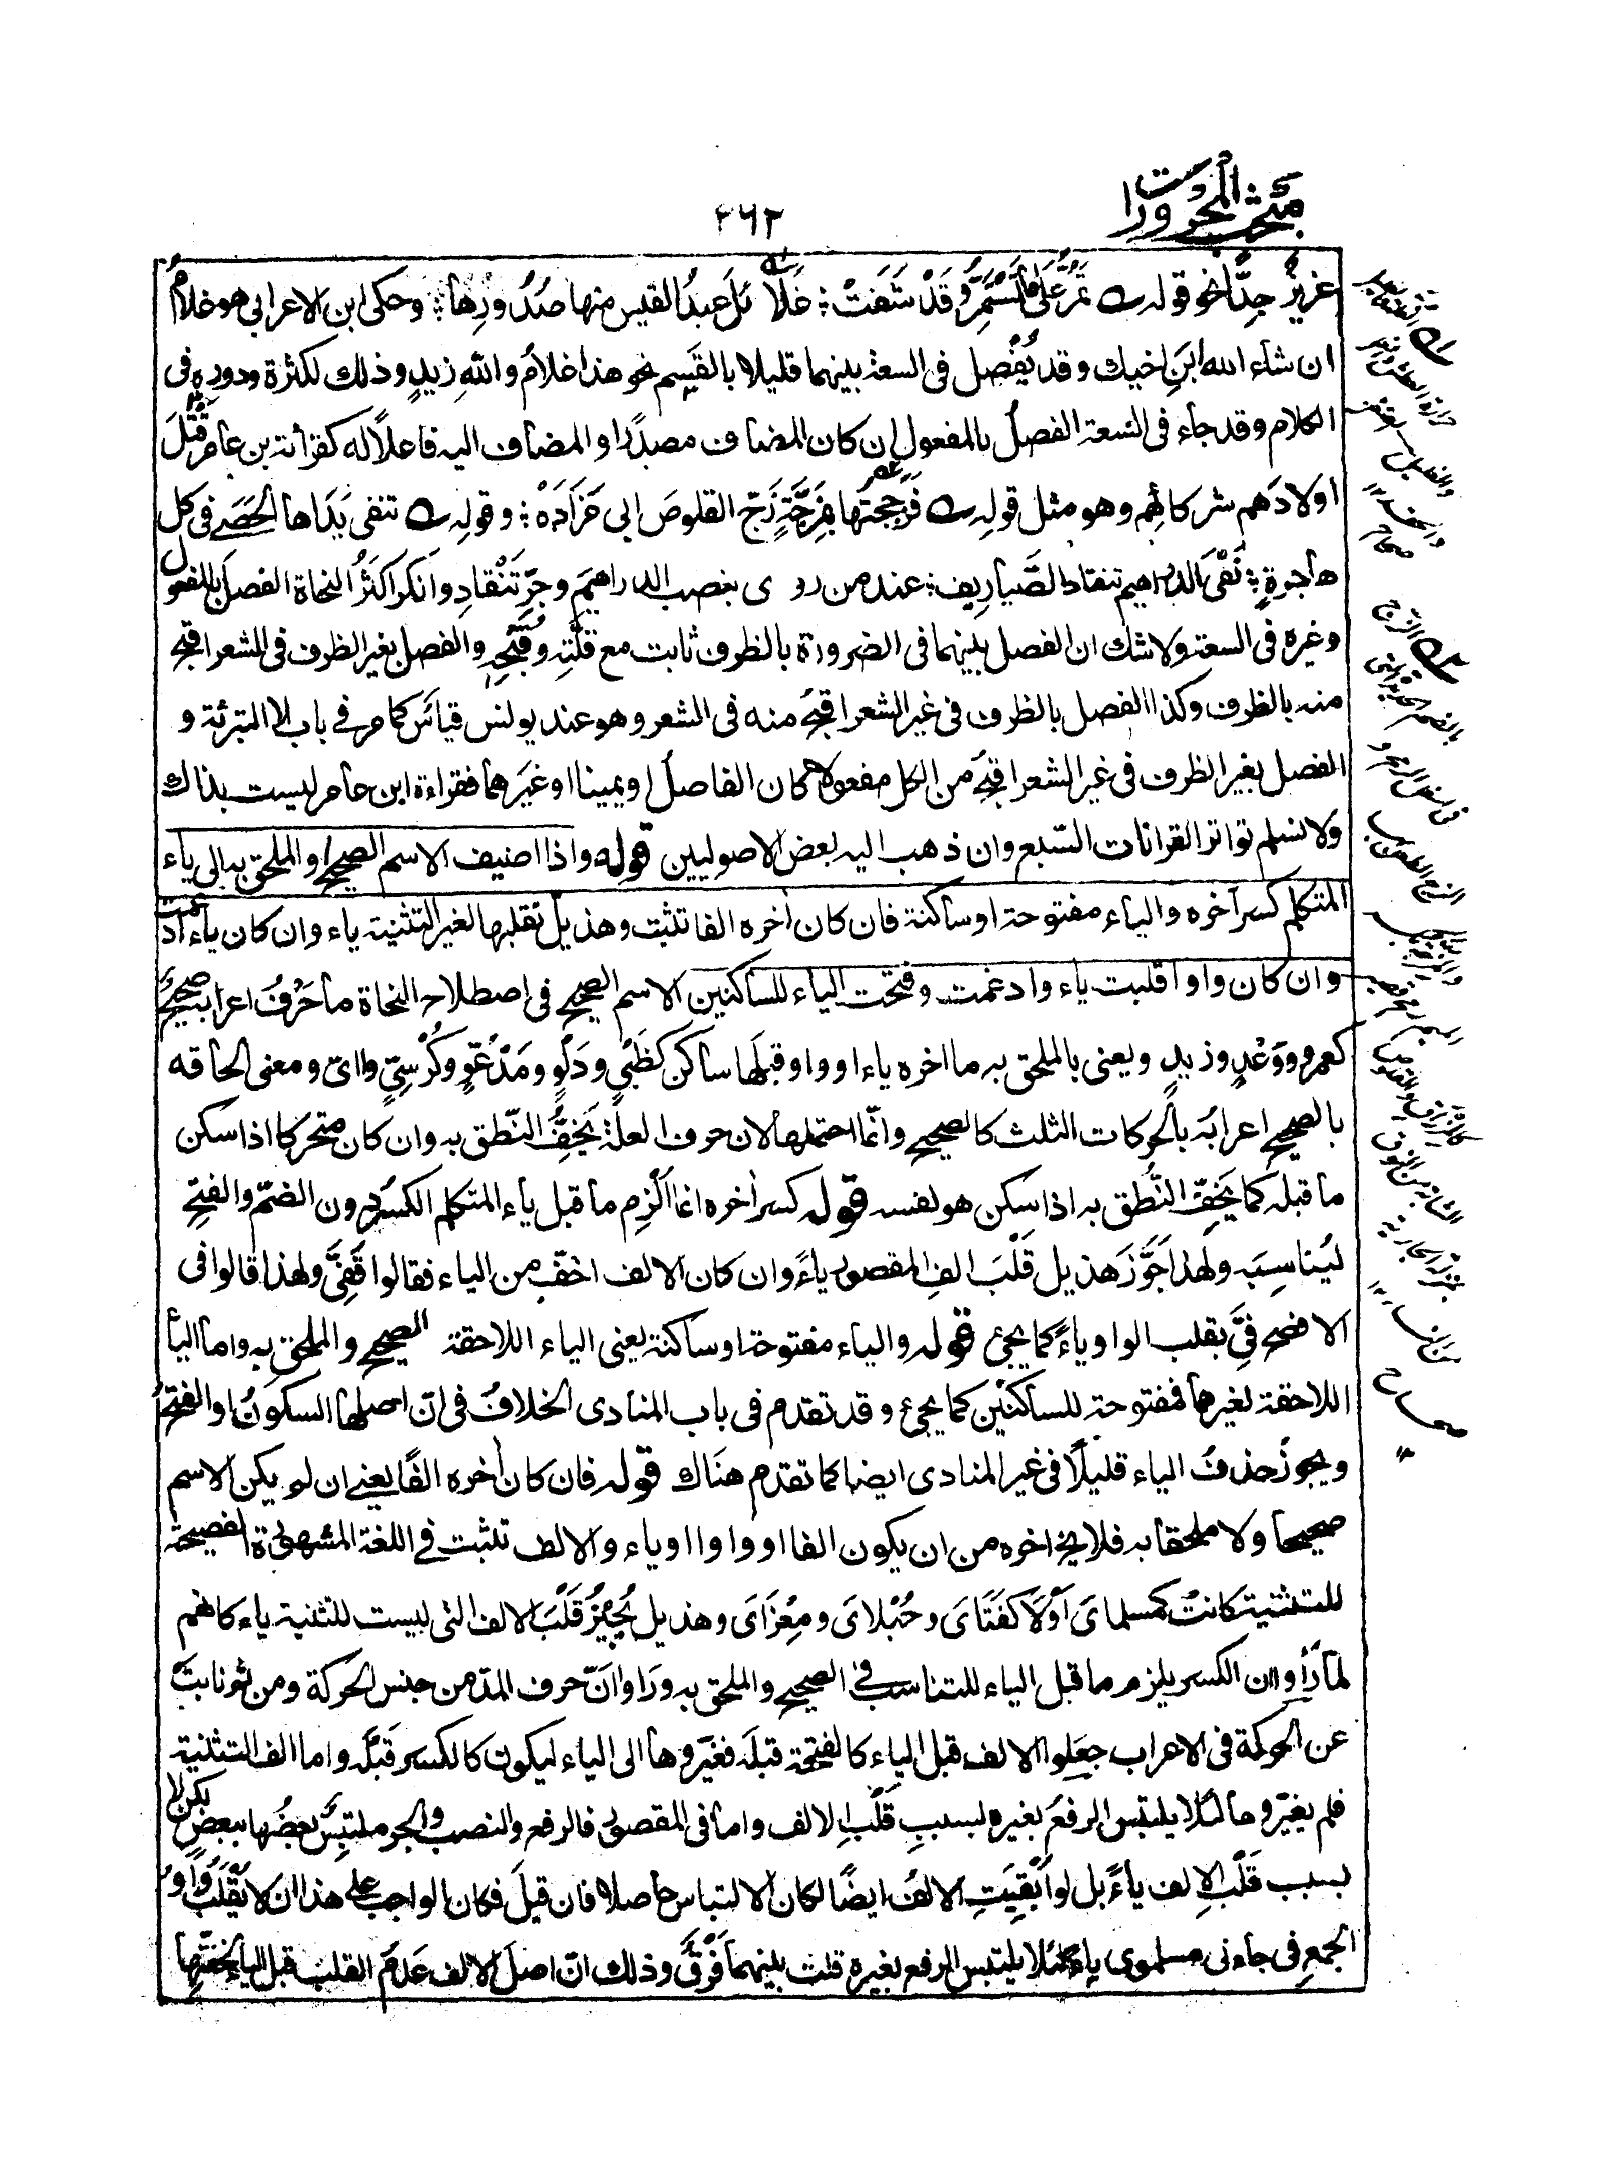 مبحث المجرورات
٢٦٢
عزيزٌ جدًّا نحو قوله تمرُّ على ما تستمرُّ وقد شفت ؛ غلائل عبدُ القيس منها صدُورِها ؛ وحكى ابن الاعرابى هو غلامُ
ان شاء الله ابنِ اخيك وقد يُفْصل فى السعة بينهما قليلا بالقَسِم نحو هذا غلامُ والله زيدٍ وذلك لكثرة دوره فى
الكلام وقد جاء فى السّعة الفصلُ بالمفعول ان كان المضاف مصدرًا والمضاف اليه فاعلًا له كقرأة بن عامر قَتْلَ
اولادَهم شركائهم وهو مثل قوله فَزَججتُها بِمَزَجَّةٍ زَجَّ القلوصَ ابى مَزَادَهْ ؛ وقوله تنفى يَدَاها الحَصَى فى كل
هاجرةٍ ؛ نَفْىَ الدراهيم تنقاد الصَّياريف ؛ عند من روى بنصب الدراهيمَ وجرِّ تَنْقادِ وانكر اكثَرُ النحاة الفصلَ بالمفعول
وغيره فى السعة ولا شك ان الفصل بينهما فى الضرورة بالظرف ثابت مع قلّته وقُبْحِه والفصل بغير الظرف فى الشعر اقبح
منه بالظرف وكذا الفصل بالظرف فى غير الشعر اقبحُ منه فى الشعر وهو عند يونس قياس كما مر فى باب لا التبرئة و
الفصل بغير الظرف فى غير الشعر اقبحُ من الكل مفعولا كان الفاصلُ او يمينا او غيَرهما فقراءة ابن عامر ليست بذاك
ولا نسلم تواتر القراأت السّبع وان ذهب اليه بعض الاصوليين قوله واذا اضيف الاسم الصحيح او الملحق به الى ياء
المتكلم كسر آخره والياء مفتوحة او ساكنة فان كان اٰخره الفا تثبت وهذيل تقلبها لغير التثنية ياء وان كان ياء ادغمت
وان كان واوا قلبت ياء وادغمت وفتحت الياء للساكنين الاسم الصحيح فى اصطلاح النحاة ما حَرْفُ اعرابه صحيحٌ
كعمرو ووَعْدٍ وزيدٍ ويعنى بالملحق به ما اخره ياء او واو قبلَها ساكن كظَبْىٍ ودَلْوٍ ومَدْعُوٍّ وكُرْسِىٍّ واىّ ومعنى الحاقه
بالصحيح اعرابُه بالحركات الثلث كالصحيح وانّما احتملها لان حرف العلة يَخِفُّ النّطق به وان كان متحركا اذا سكن
ما قبله كما يَخِفّ النُّطق به اذا سكن هو نفسه قوله كسر اٰخره انما اُلْزِم ما قبل ياء المتكلم الكسر دون الضمّ والفتح
ليُناسِبَه ولهذا جَوَّزَ هذيل قَلْبَ الف المقصور ياءً وان كان الالف اخفّ من الياء فقالوا قَفَىَّ ولهذا قالوا فى
الافصح فِىَّ بقلب الواو ياءً كما يجئ قوله والياء مفتوحة او ساكنة يعنى الياء اللاحقة الصحيح والملحق به واما الياء
اللاحقة لغيرها فمفتوحة للساكنين كما يجئ وقد تقدم فى باب المنادى الخلافُ فى انّ اصلها السكونُ او الفتحُ
ويجوز حذفُ الياء قليلًا فى غير المنادى ايضا كما تقدم هناك قوله فان كان اٰخره الفًا يعنى ان لم يكن الاسم
صحيحا ولا ملحقا به فلا يخ اخره من ان يكون الفا او واوا او ياء والالف تثبت فى اللغة المشهورة الفصيحة
للتثنية كانت كمسلماىَ اَوْلَا كفَتَاىَ وحُبْلاىَ ومِعْزَاىَ وهذيل يُجِيْزُ قَلْبَ الالف التى ليست للتثنية ياء كانهم
لما رَأوا ان الكسر يلزم ما قبل الياء للتناسب فى الصحيح والملحق به ورَاوا انّ حروف المدّ من جنس الحركة ومن ثم نابتْ
عن الحركة فى الاعراب جعَلوا الالف قبل الياء كالفتحة قبلَه فغيّروها الى الياء ليكون كالكسر قبْلَه واما الف التثنية
فلم يغيّروها لئلا يلتبس الرفعُ بغيره بسببِ قَلْبِ الالف واما فى المقصور فالرفع والنصب والجر ملتبِسٌ بعضُها ببعض لكن لا
بسبب قَلْبِ الالف ياءً بل لو اُبْقِيَتِ الالفُ ايضًا لكان الالتباس حاصلا فان قيلَ فكان الواجب على هذا ان لا يُقْلَبَ واوُ
الجمع فى جاءنى مسلموى ياء لئلا يلتبس الرفع بغيره قلت بينهما فَرْقٌ وذلك انّ اصل الالف عَدَمُ القلب قبل الياء لخفّتها